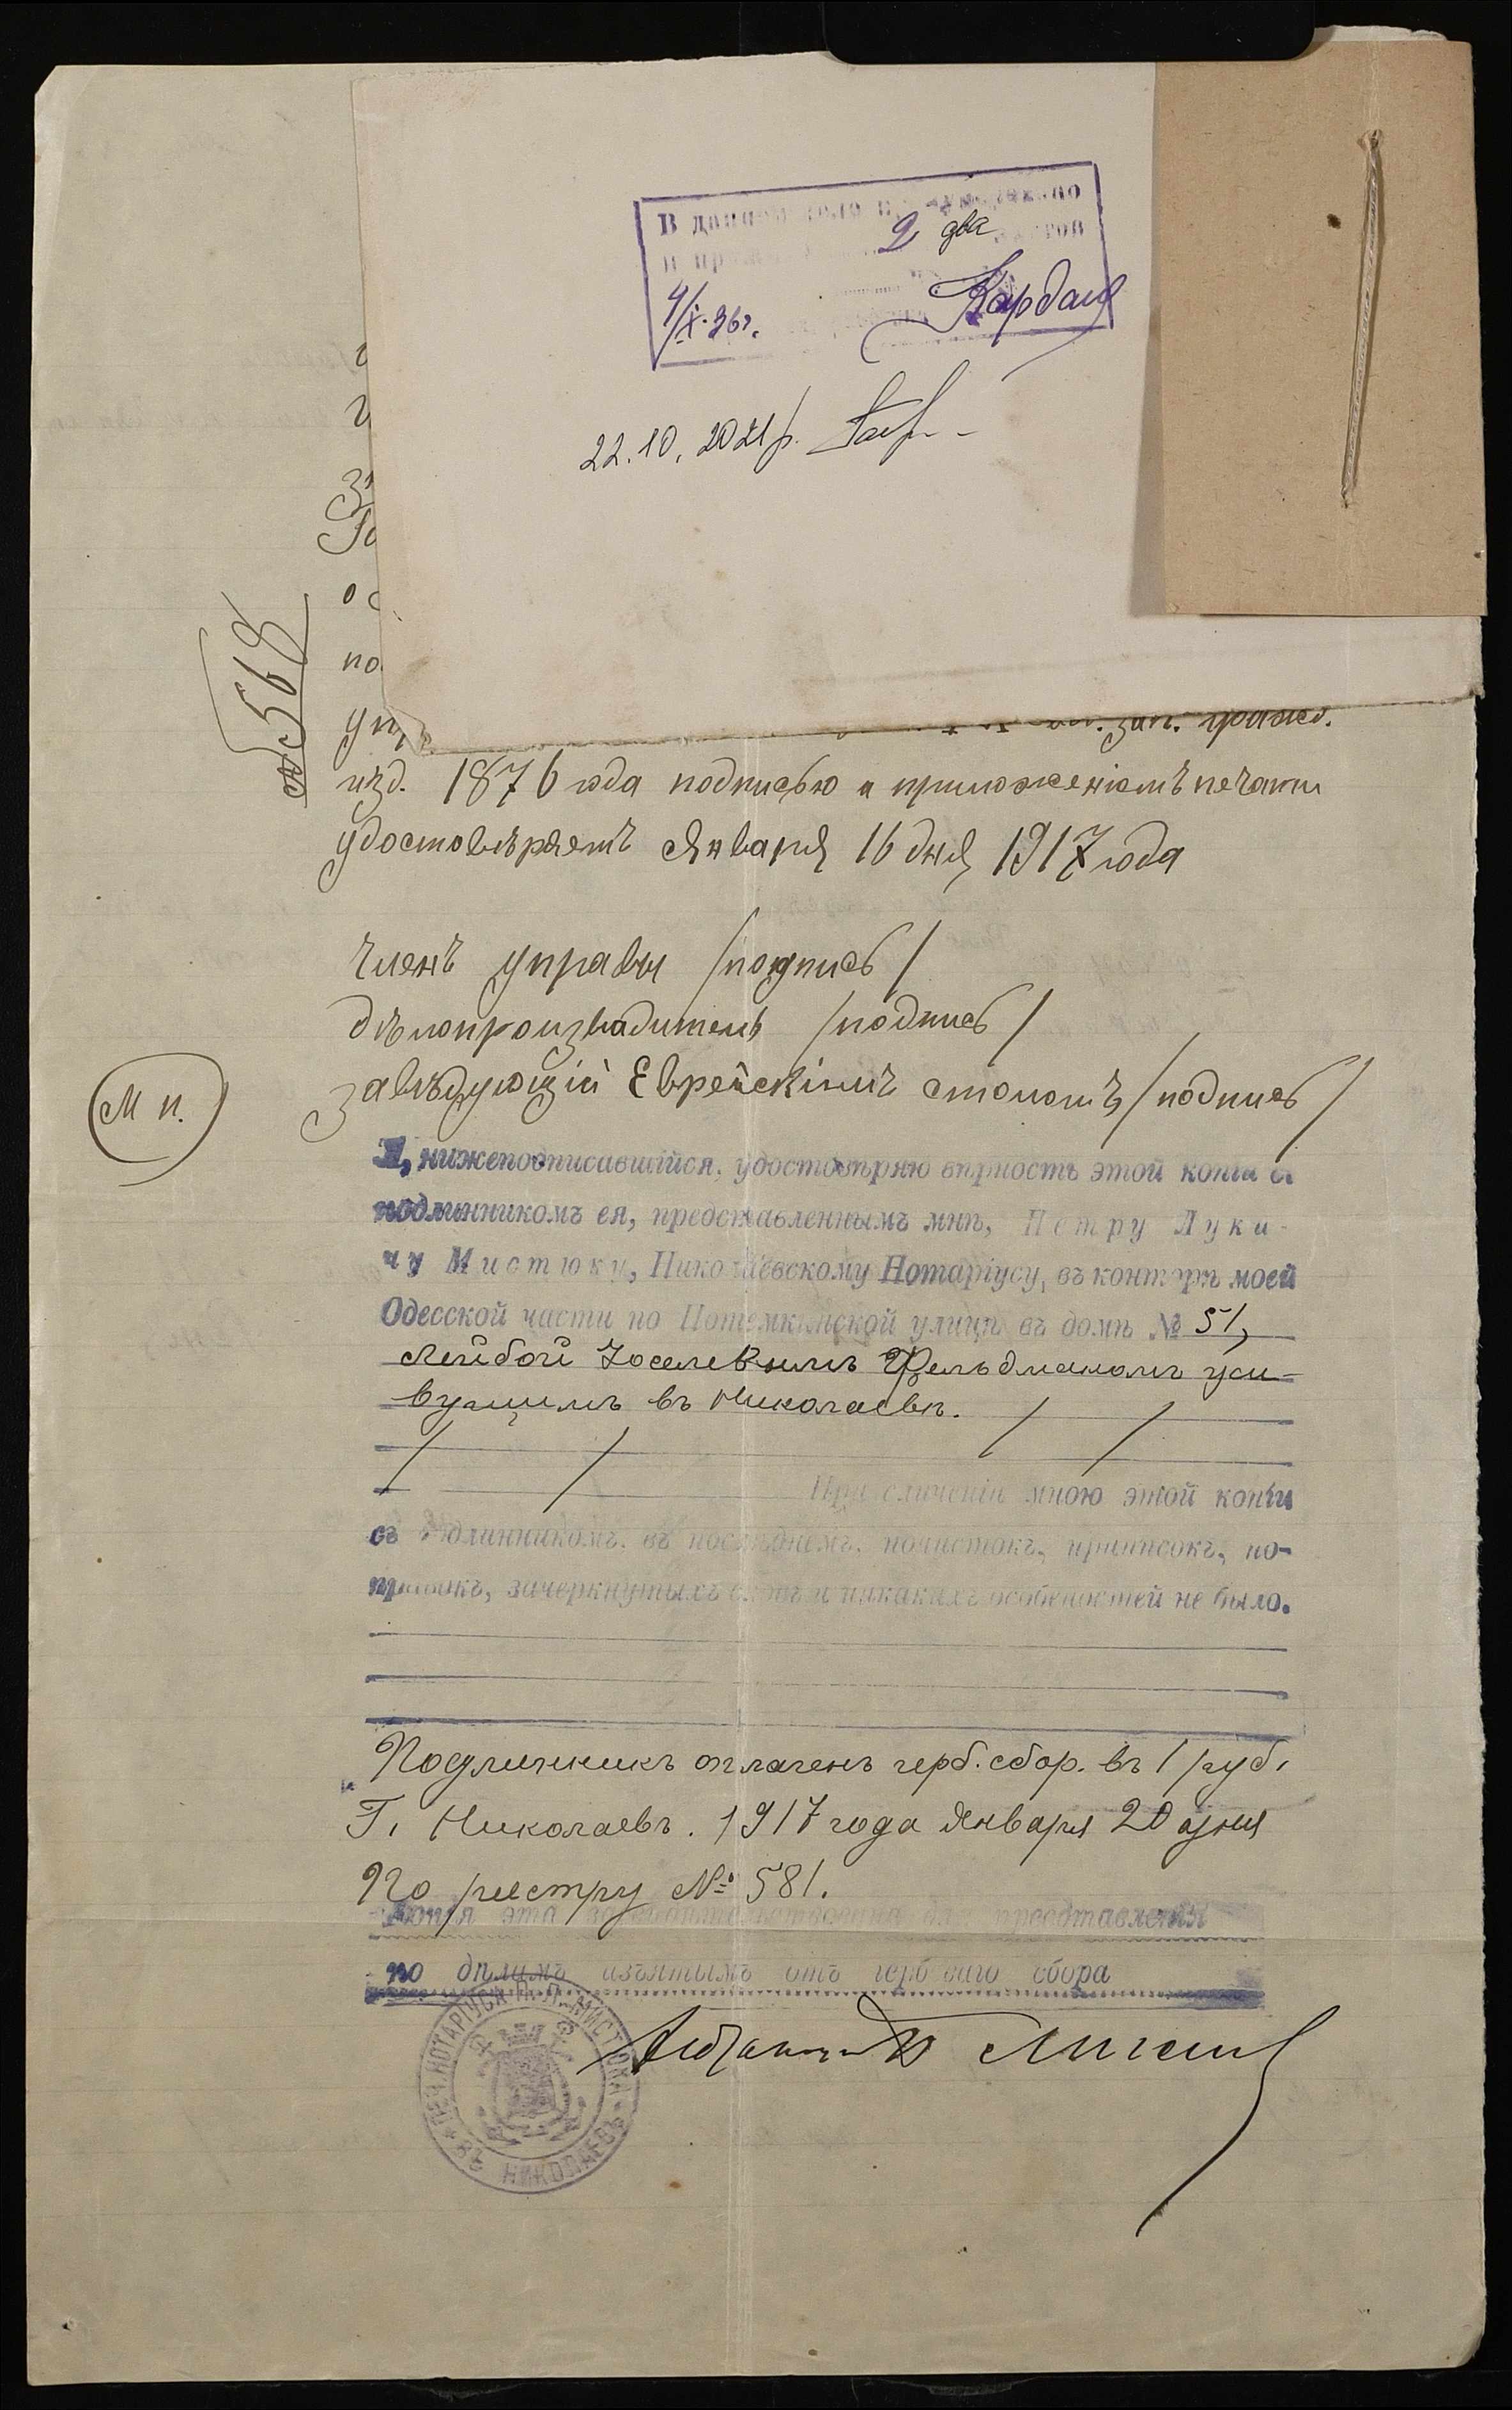 В данном деле пронумеровано
2 два листов
4/X-36г. Кардаш
22.10.2021р.
г
Зн
ос
по
№ 568
уп зап. гражд.
изд. 1876 года подписью и приложеніемъ печати
удостовѣряетъ Января 16 дня 1917 года
Членъ управы /подпись/
дѣлопроизводитель /подпись/
завѣдующій Еврейскимъ столомъ /подпись/
М п.
Я, нижеподписавшійся, удостовѣряю вѣрность этой копіи съ
подлинникомъ ея, представленнымъ мнѣ, Петру Луки-
чу Мистюку, Николаевскому Нотаріусу, въ конторѣ моей
Одесской части по Потемкинской улицѣ въ домѣ № 51,
Лейбой Іоселевымъ Фельдманомъ жи-
вущимъ въ Николаевѣ.
При сличеніи мною этой копіи
съ подлинникомъ, въ послѣднемъ, почистокъ, приписокъ, по-
правокъ, зачеркнутыхъ словъ и никакихъ особеностей не было.
Подлинникъ оплаченъ герб. сбор. въ 1 руб.
Г. Николаевъ. 1917 года Января 20 дня
По реестру № 581.
Копія эта засвидѣтельствована для представленія
по дѣламъ изъятымъ отъ гербоваго сбора
ПЕЧ. НОТАРІУСА П. Л. МИСТЮКА
ВЪ НИКОЛАЕВѢ